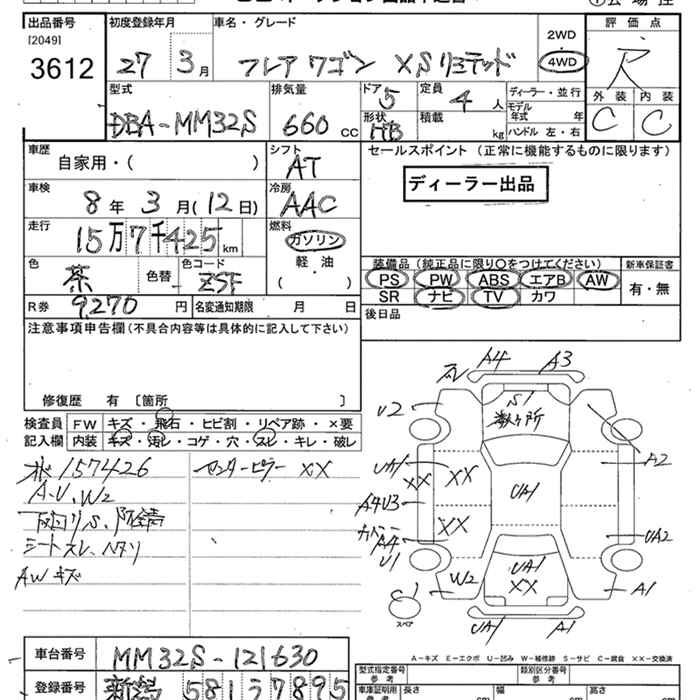 出品番号
[2049]
3612
初度登録年月
27 3月
車名・グレード
フレアワゴン XSリミテッド
2WD
・
4WD
評価点
R
外装 内装
C C
型式
DBA-MM32S
排気量
660 CC
ドア
5
形状
HB
定員
4 人
積載
kg
ディーラー・並行
モデル
年式 年
ハンドル 左・右
車歴
自家用・( )
シフト
AT
セールスポイント (正常に機能するものに限ります)
ディーラー出品
車検
8年 3月 (12日)
冷房
AAC
走行
15万7千425km
燃料
ガソリン
軽・油
( )
色
茶
色替
色コード
ZSF
装備品 (純正品に限り○をつけてください)
PS PW ABS エアB AW
SR ナビ TV カワ
新車保証書
有・無
R券 9,270 円
名変通知期限 月 日
後日品
注意事項申告欄(不具合内容等は具体的に記入して下さい)
修復歴 有 〔箇所 〕
検査員
記入欄
FW キズ・飛石・ヒビ割・リペア跡・×要
内装 キズ・汚レ・コゲ・穴・スレ・キレ・破レ
157426
A-U、W2
下回りS、防錆
シートスレ、ヘタリ
AWキズ
センターピラー XX
A4 A3
S1
数ヶ所
U2
UA1
XX XX
A4U3
XX
カバー
A4
U1
UA1
A2
UA2
W2
UA1
XX
A1
C1
スペア
UA1 A1
A-キズ E-エクボ U-凹み W-補修跡 S-サビ C-腐食 XX-交換済
車台番号 MM32S-121630
登録番号 新潟 581 7895
型式指定番号
参考
類別区分番号
参考
車庫証明用
参考
長さ 幅 高さ
cm cm cm